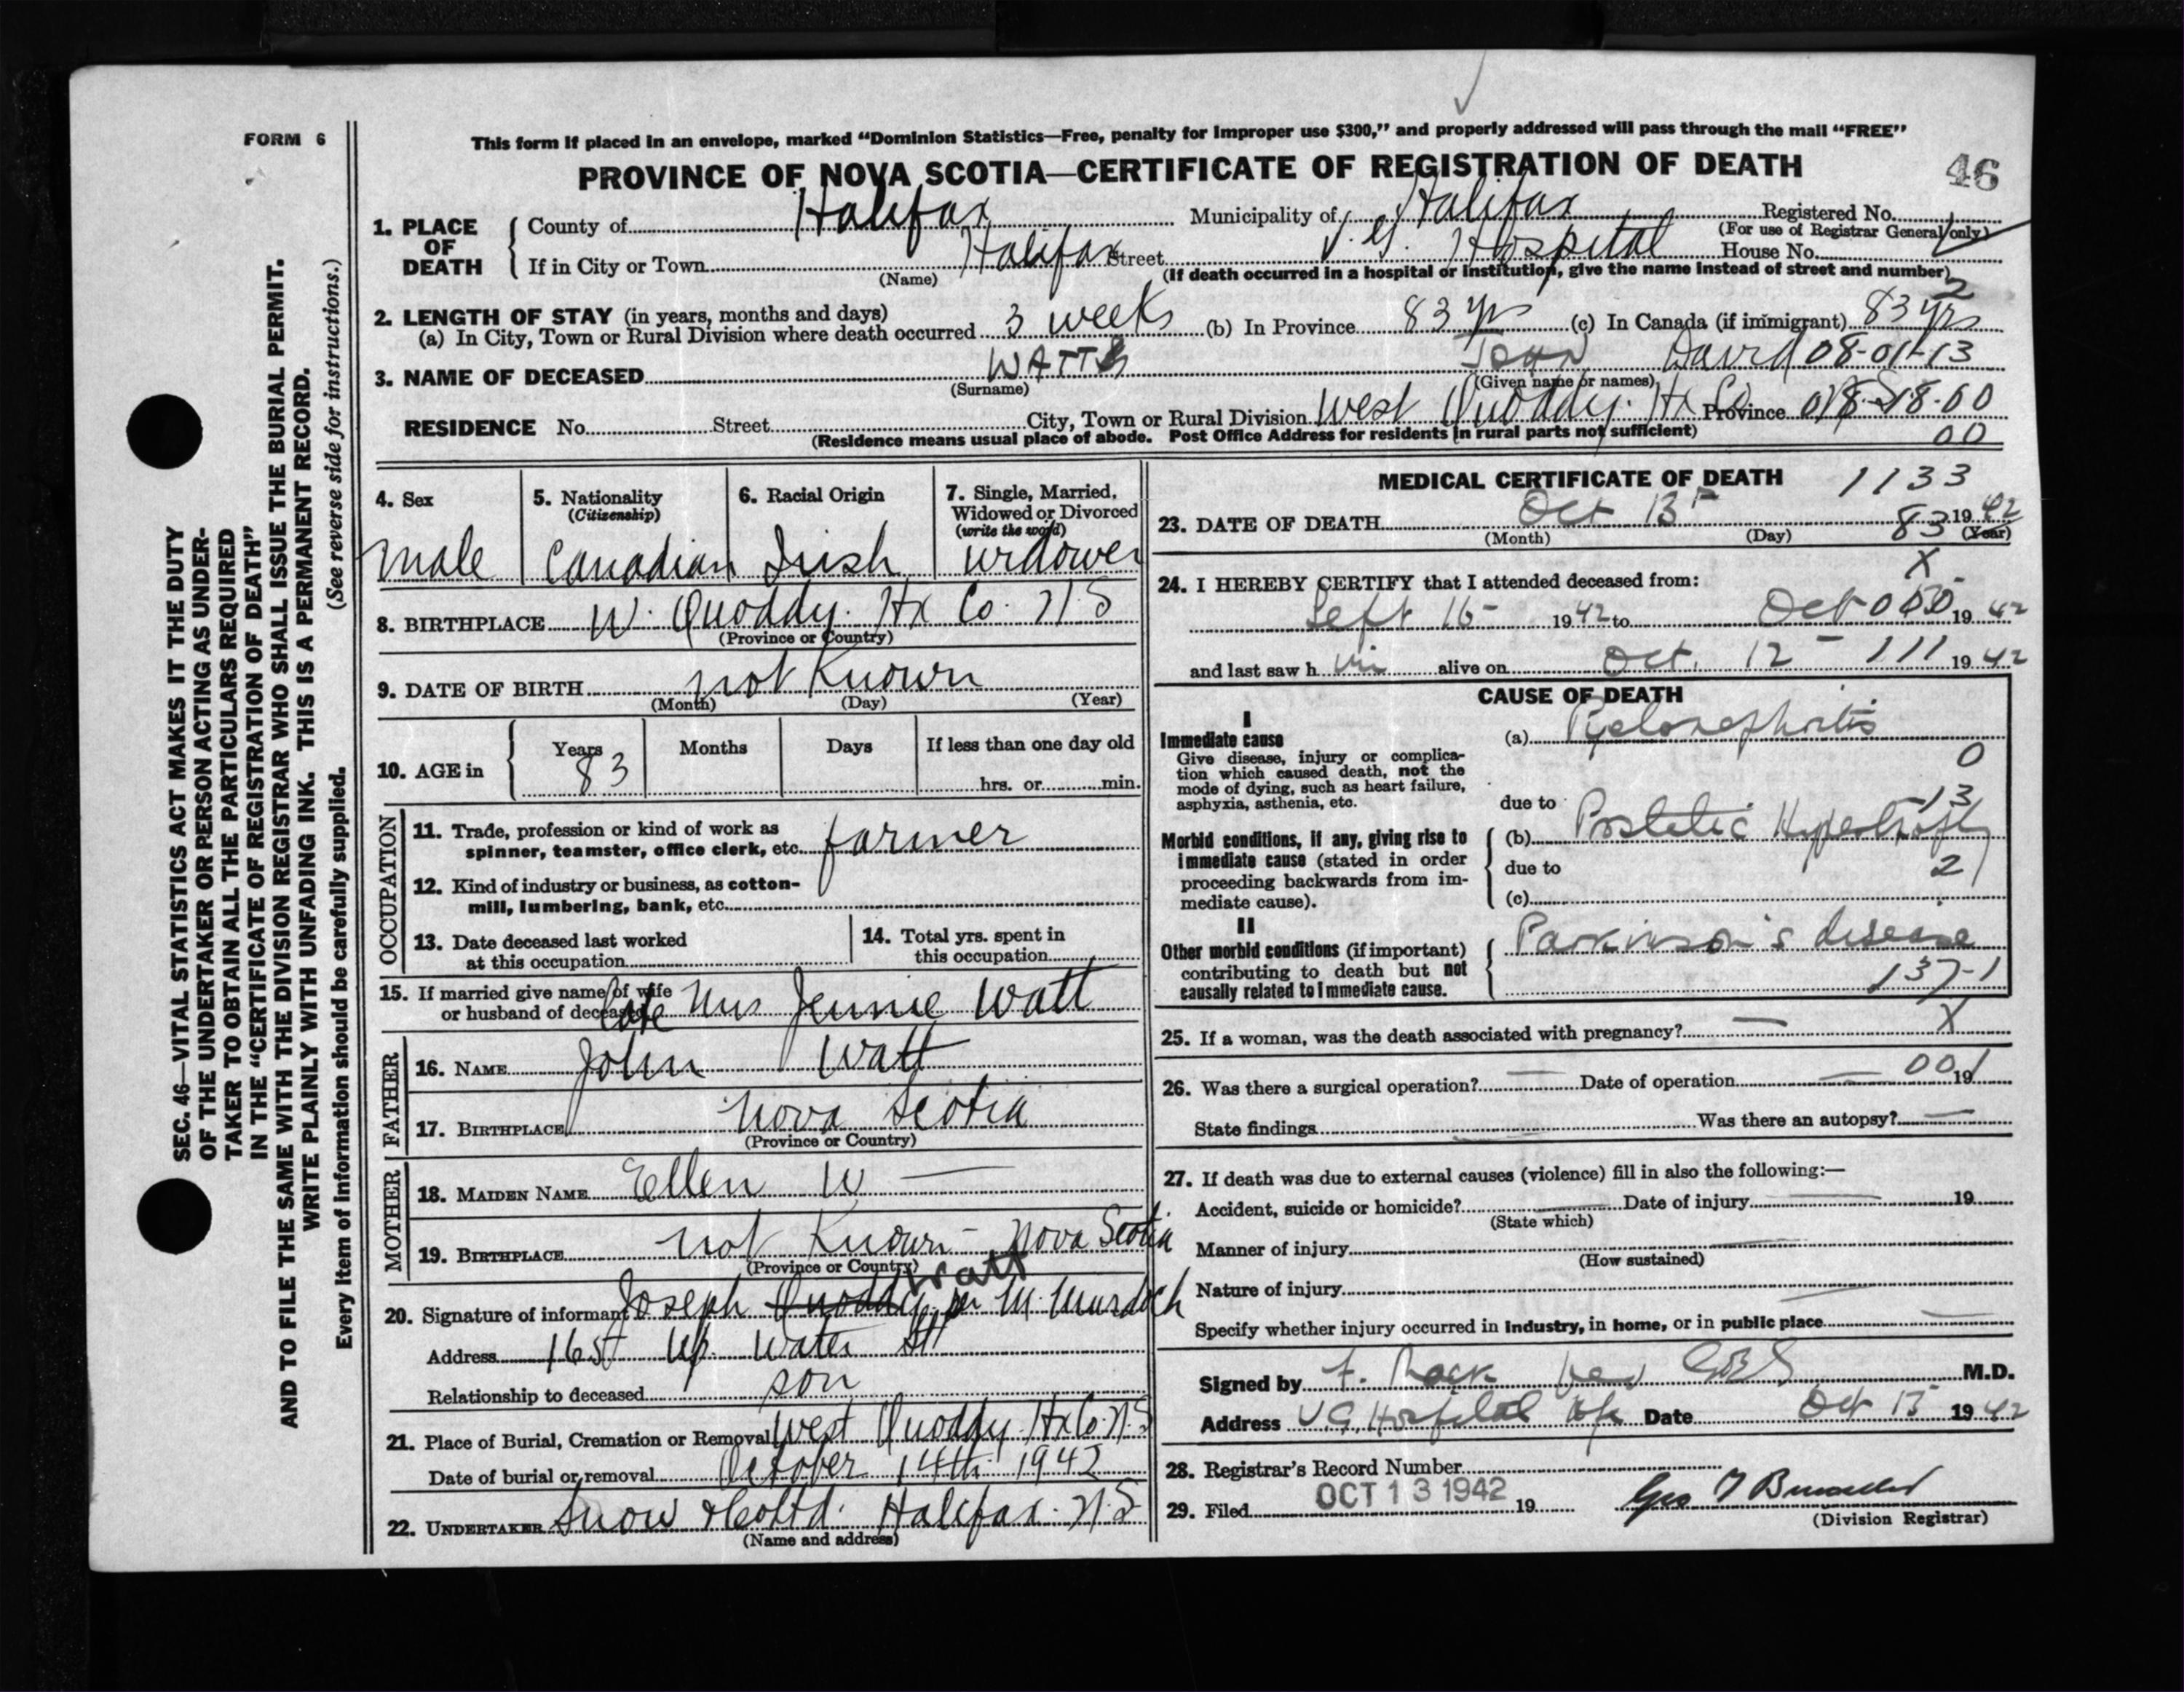 FORM 6
This form if placed in an envelope, marked “Dominion Statistics—Free, penalty for improper use $300,” and properly addressed will pass through the mail “FREE”
PROVINCE OF NOVA SCOTIA—CERTIFICATE OF REGISTRATION OF DEATH
46
1. PLACE OF DEATH
County of Halifax Municipality of Halifax Registered No.
(For use of Registrar General only)
If in City or Town Halifax Street V. G. Hospital House No.
(Name) (If death occurred in a hospital or institution, give the name instead of street and number)
2
2. LENGTH OF STAY (in years, months and days)
(a) In City, Town or Rural Division where death occurred 3 weeks (b) In Province 83 yrs (c) In Canada (if immigrant) 83 yrs
3. NAME OF DECEASED WATT David 08-01-13
(Surname) (Given name or names)
RESIDENCE No. Street City, Town or Rural Division West Quoddy. Hx Co Province 18-00
(Residence means usual place of abode. Post Office Address for residents in rural parts not sufficient)
00
4. Sex
male
5. Nationality
(Citizenship)
Canadian
6. Racial Origin
Irish
7. Single, Married, Widowed or Divorced
(write the word)
widower
8. BIRTHPLACE W. Quoddy. Hx Co. N.S
(Province or Country)
9. DATE OF BIRTH not Known
(Month) (Day) (Year)
10. AGE in
Years Months Days If less than one day old
83
hrs. or min.
OCCUPATION
11. Trade, profession or kind of work as
spinner, teamster, office clerk, etc. farmer
12. Kind of industry or business, as cotton-
mill, lumbering, bank, etc.
13. Date deceased last worked
at this occupation
14. Total yrs. spent in
this occupation
15. If married give name of wife
or husband of deceased Late Mrs Jennie Watt
FATHER
16. NAME John Watt
17. BIRTHPLACE Nova Scotia
(Province or Country)
MOTHER
18. MAIDEN NAME Ellen W —
19. BIRTHPLACE not Known - Nova Scotia
(Province or Country)
Watt
20. Signature of informant Joseph Quoddy per M. Murdoch
Address Up. Water St
Relationship to deceased son
21. Place of Burial, Cremation or Removal West Quoddy. Hx Co. N.S
Date of burial or removal October 14th 1942
22. UNDERTAKER Snow & Co Ltd. Halifax. N.S
(Name and address)
MEDICAL CERTIFICATE OF DEATH 1133
23. DATE OF DEATH Oct 13 1942
(Month) (Day) (Year)
83
X
24. I HEREBY CERTIFY that I attended deceased from:
Sept 16 - 1942 to Oct 1942
and last saw h im alive on Oct. 12 - 111 1942
CAUSE OF DEATH
I
Immediate cause
Give disease, injury or complica-
tion which caused death, not the
mode of dying, such as heart failure,
asphyxia, asthenia, etc.
(a) Pyelonephritis
0
due to 13
Morbid conditions, if any, giving rise to
immediate cause (stated in order
proceeding backwards from im-
mediate cause).
(b) Prostatic Hypertrophy
due to 2
(c)
II
Other morbid conditions (if important)
contributing to death but not
causally related to immediate cause.
Parkinson's disease
137-1
25. If a woman, was the death associated with pregnancy? — X
26. Was there a surgical operation? — Date of operation — 001 19
State findings Was there an autopsy? —
27. If death was due to external causes (violence) fill in also the following:—
Accident, suicide or homicide? Date of injury 19
(State which)
Manner of injury
(How sustained)
Nature of injury
Specify whether injury occurred in industry, in home, or in public place
Signed by M.D.
Address V.G. Hospital Hfx Date Oct 13 1942
28. Registrar's Record Number
29. Filed OCT 13 1942 19
(Division Registrar)
SEC. 46—VITAL STATISTICS ACT MAKES IT THE DUTY
OF THE UNDERTAKER OR PERSON ACTING AS UNDER-
TAKER TO OBTAIN ALL THE PARTICULARS REQUIRED
IN THE “CERTIFICATE OF REGISTRATION OF DEATH”
AND TO FILE THE SAME WITH THE DIVISION REGISTRAR WHO SHALL ISSUE THE BURIAL PERMIT.
WRITE PLAINLY WITH UNFADING INK. THIS IS A PERMANENT RECORD.
(See reverse side for instructions.)
Every item of information should be carefully supplied.